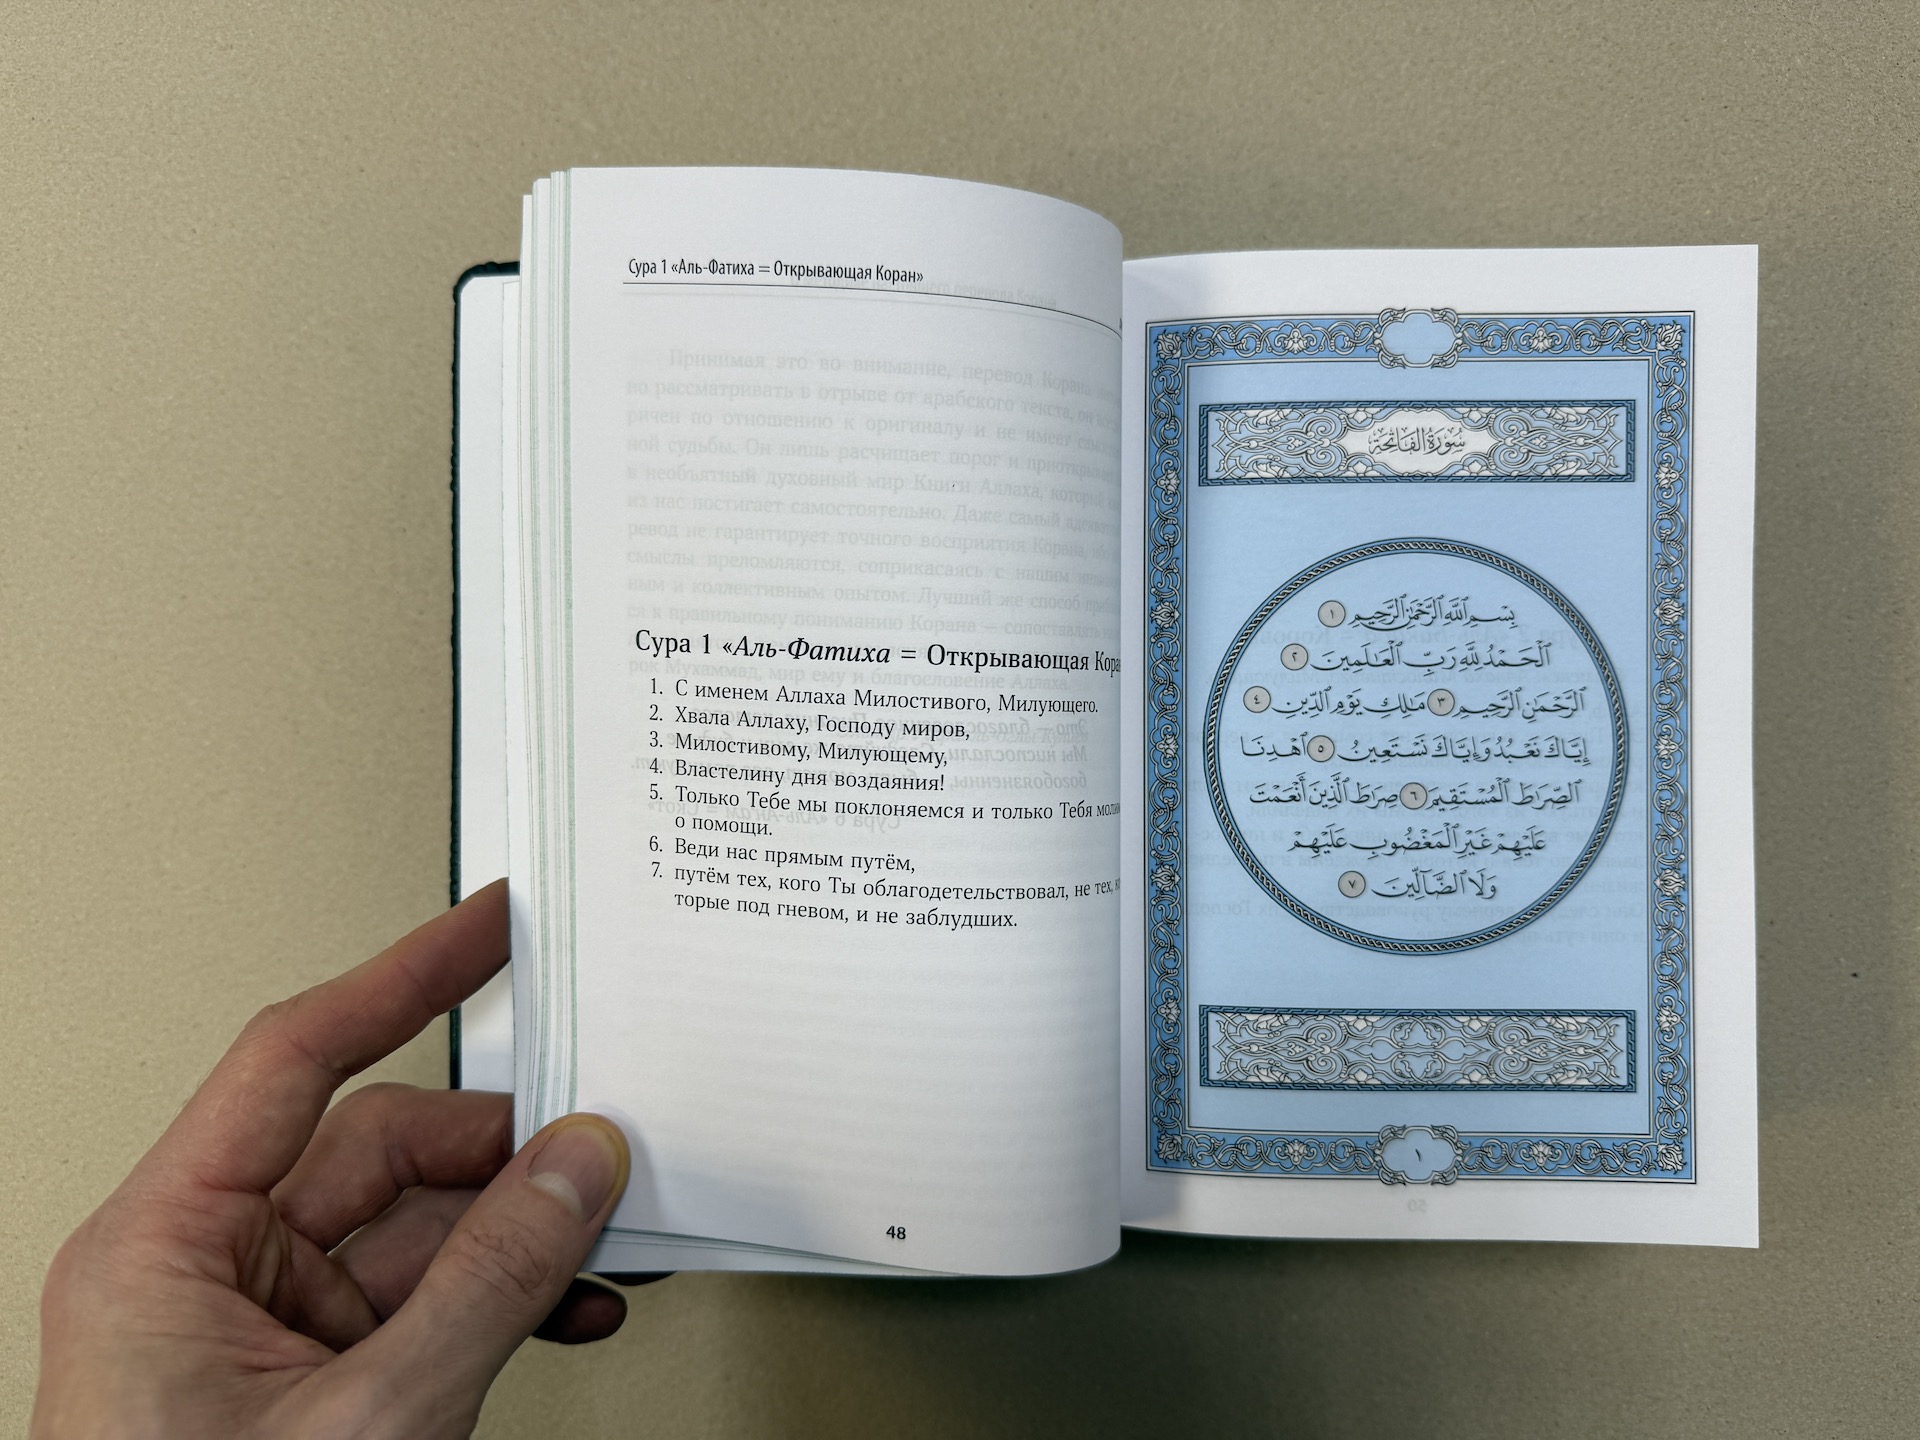 Сура 1 «Аль-Фатиха = Открывающая Коран»
Сура 1 «Аль-Фатиха = Открывающая
1. С именем Аллаха Милостивого, Милующего.
2. Хвала Аллаху, Господу миров,
3. Милостивому, Милующему,
4. Властелину дня воздаяния!
5. Только Тебе мы поклоняемся и только Тебя
о помощи.
6. Веди нас прямым путём,
7. путём тех, кого Ты облагодетельствовал, не тех,
торые под гневом, и не заблудших.
48
سُورَةُ الفَاتِحَةِ
بِسْمِ ٱللَّهِ ٱلرَّحْمَٰنِ ٱلرَّحِيمِ ١
ٱلْحَمْدُ لِلَّهِ رَبِّ ٱلْعَٰلَمِينَ ٢
ٱلرَّحْمَٰنِ ٱلرَّحِيمِ ٣ مَٰلِكِ يَوْمِ ٱلدِّينِ ٤
إِيَّاكَ نَعْبُدُ وَإِيَّاكَ نَسْتَعِينُ ٥ ٱهْدِنَا
ٱلصِّرَٰطَ ٱلْمُسْتَقِيمَ ٦ صِرَٰطَ ٱلَّذِينَ أَنْعَمْتَ
عَلَيْهِمْ غَيْرِ ٱلْمَغْضُوبِ عَلَيْهِمْ
وَلَا ٱلضَّآلِّينَ ٧
١